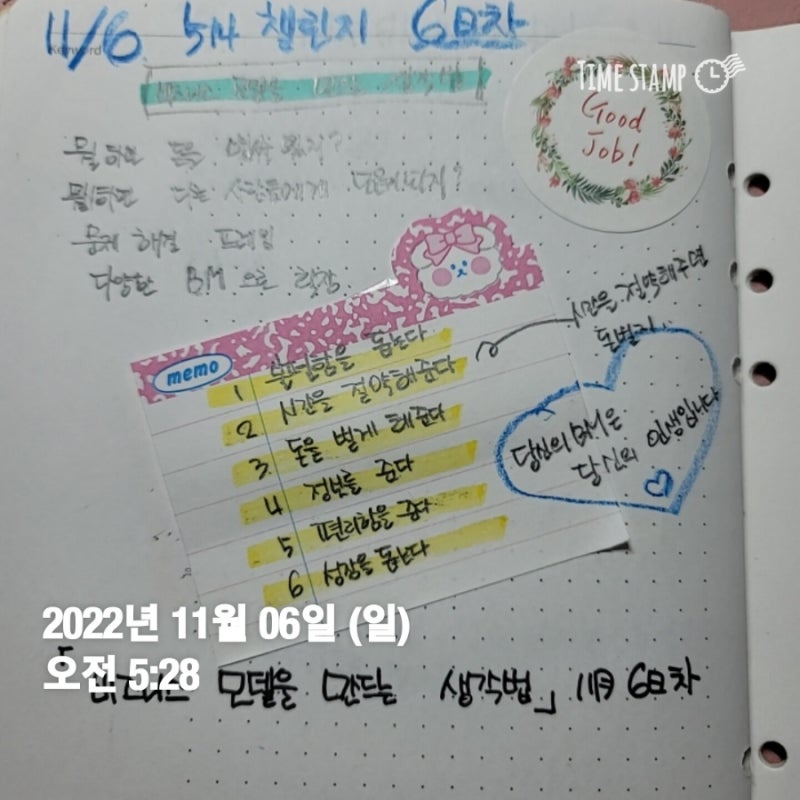 11/6 5시 챌린지 6일차
Keyword
TIME STAMP
Good
Job!
뭘하면 돈
뭘하면 나는 사람들에게
문제 해결 프레임
다양한 BM 으로 확장
시간을 절약해주면
돈벌지
memo
1 불편함을 돕는다
2 시간을 절약해준다
3 돈을 벌게 해준다
4 정보를 준다
5 편리함을 준다
6 성장을 돕는다
당신의 BM은
당신의 인생입니다
2022년 11월 06일 (일)
오전 5:28
「비즈니스 모델을 만드는 생각법」 11月 6日차